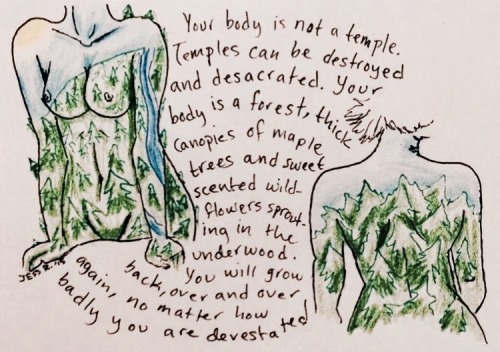 Your body is not a temple.
Temples can be destroyed
and desacrated. Your
body is a forest, thick
canopies of maple
trees and sweet
scented wild-
flowers sprout-
ing in the
underwood.
You will grow
back, over and over
again, no matter how
badly you are devestated